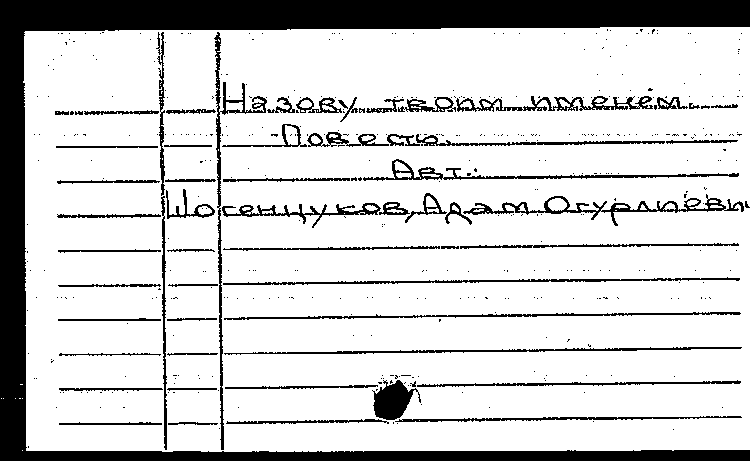 Назову твоим именем.
Повесть.
Авт.:
Шогенцуков, Адам Огурлиевич